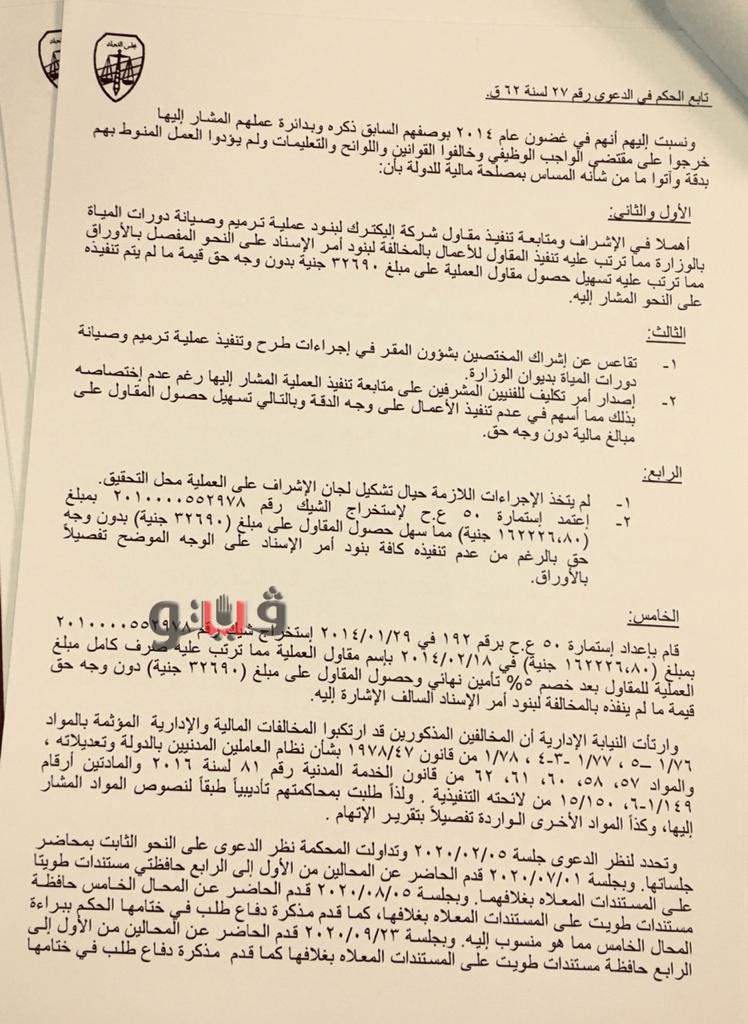 مجلس الدولة
تابع الحكم في الدعوى رقم ٢٧ لسنة ٦٢ ق.
ونسبت إليهم أنهم في غضون عام ٢٠١٤ بوصفهم السابق ذكره وبدائرة عملهم المشار إليها
خرجوا على مقتضى الواجب الوظيفي وخالفوا القوانين واللوائح والتعليمات ولم يؤدوا العمل المنوط بهم
بدقة وأتوا ما من شأنه المساس بمصلحة مالية للدولة بأن:
الأول والثاني:
أهملا في الإشراف ومتابعة تنفيذ مقاول شركة إليكترك لبنود عملية ترميم وصيانة دورات المياة
بالوزارة مما ترتب عليه تنفيذ المقاول للأعمال بالمخالفة لبنود أمر الإسناد على النحو المفصل بالأوراق
مما ترتب عليه تسهيل حصول مقاول العملية على مبلغ ٣٢٦٩٠ جنية بدون وجه حق قيمة ما لم يتم تنفيذه
على النحو المشار إليه.
الثالث:
١- تقاعس عن إشراك المختصين بشؤون المقر في إجراءات طرح وتنفيذ عملية ترميم وصيانة
دورات المياة بديوان الوزارة.
٢- إصدار أمر تكليف للفنيين المشرفين على متابعة تنفيذ العملية المشار إليها رغم عدم إختصاصه
بذلك مما أسهم في عدم تنفيذ الأعمال على وجه الدقة وبالتالي تسهيل حصول المقاول على
مبالغ مالية دون وجه حق.
الرابع:
١- لم يتخذ الإجراءات اللازمة حيال تشكيل لجان الإشراف على العملية محل التحقيق.
٢- إعتمد إستمارة ٥٠ ع.ح لإستخراج الشيك رقم ٢٠١٠٠٠٠٥٥٢٩٧٨ بمبلغ
(١٦٢٢٢٦،٨٠ جنية) مما سهل حصول المقاول على مبلغ (٣٢٦٩٠ جنية) بدون وجه
حق بالرغم من عدم تنفيذه كافة بنود أمر الإسناد على الوجه الموضح تفصيلاً
بالأوراق.
ڤيتو
الخامس:
قام بإعداد إستمارة ٥٠ ع.ح برقم ١٩٢ في ٢٠١٤/٠١/٢٩ إستخراج شيك رقم ٢٠١٠٠٠٠٥٥٢٩٧٨
بمبلغ (١٦٢٢٢٦،٨٠ جنية) في ٢٠١٤/٠٢/١٨ بإسم مقاول العملية مما ترتب عليه صرف كامل مبلغ
العملية للمقاول بعد خصم ٥% تأمين نهائي وحصول المقاول على مبلغ (٣٢٦٩٠ جنية) دون وجه حق
قيمة ما لم ينفذه بالمخالفة لبنود أمر الإسناد السالف الإشارة إليه.
وارتأت النيابة الإدارية أن المخالفين المذكورين قد ارتكبوا المخالفات المالية والإدارية المؤثمة بالمواد
١/٧٦ – ٥، ١/٧٧ -٣-٤، ١/٧٨ من قانون ١٩٧٨/٤٧ بشأن نظام العاملين المدنيين بالدولة وتعديلاته ،
والمواد ٥٧، ٥٨، ٦٠، ٦١، ٦٢ من قانون الخدمة المدنية رقم ٨١ لسنة ٢٠١٦ والمادتين أرقام
١/١٤٩-٦، ١٥/١٥٠ من لائحته التنفيذية . ولذا طلبت بمحاكمتهم تأديبياً طبقاً لنصوص المواد المشار
إليها، وكذا المواد الأخرى الواردة تفصيلاً بتقرير الإتهام .
وتحدد لنظر الدعوى جلسة ٢٠٢٠/٠٢/٠٥ وتداولت المحكمة نظر الدعوى على النحو الثابت بمحاضر
جلساتها. وبجلسة ٢٠٢٠/٠٧/٠١ قدم الحاضر عن المحالين من الأول إلى الرابع حافظتي مستندات طويتا
على المستندات المعلاه بغلافهما. وبجلسة ٢٠٢٠/٠٨/٠٥ قدم الحاضر عن المحال الخامس حافظة
مستندات طويت على المستندات المعلاه بغلافها، كما قدم مذكرة دفاع طلب في ختامها الحكم ببراءة
المحال الخامس مما هو منسوب إليه. وبجلسة ٢٠٢٠/٠٩/٢٣ قدم الحاضر عن المحالين من الأول إلى
الرابع حافظة مستندات طويت على المستندات المعلاه بغلافها كما قدم مذكرة دفاع طلب في ختامها